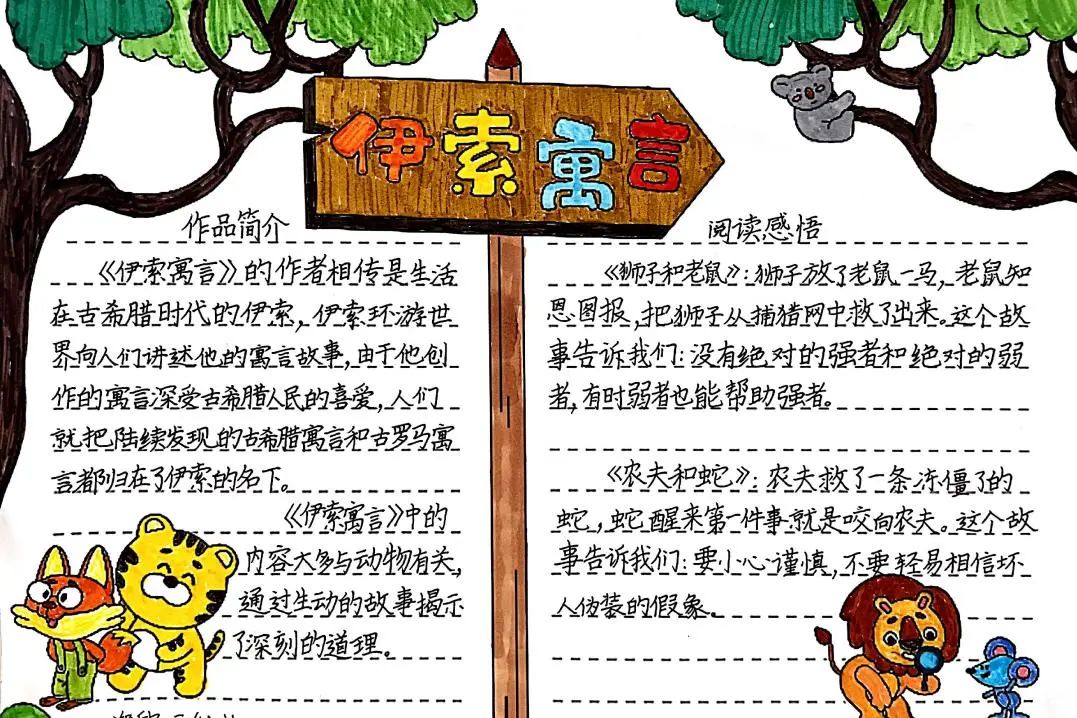 伊索寓言
作品简介
《伊索寓言》的作者相传是生活
在古希腊时代的伊索，伊索环游世
界向人们讲述他的寓言故事，由于他创
作的寓言深受古希腊人民的喜爱，人们
就把陆续发现的古希腊寓言和古罗马寓
言都归在了伊索的名下。
《伊索寓言》中的
内容大多与动物有关，
通过生动的故事揭示
了深刻的道理。
阅读感悟
《狮子和老鼠》：狮子放了老鼠一马，老鼠知
恩图报，把狮子从捕猎网中救了出来。这个故
事告诉我们：没有绝对的强者和绝对的弱
者，有时弱者也能帮助强者。
《农夫和蛇》：农夫救了一条冻僵了的
蛇，蛇醒来第一件事就是咬向农夫。这个故
事告诉我们：要小心谨慎，不要轻易相信坏
人伪装的假象。